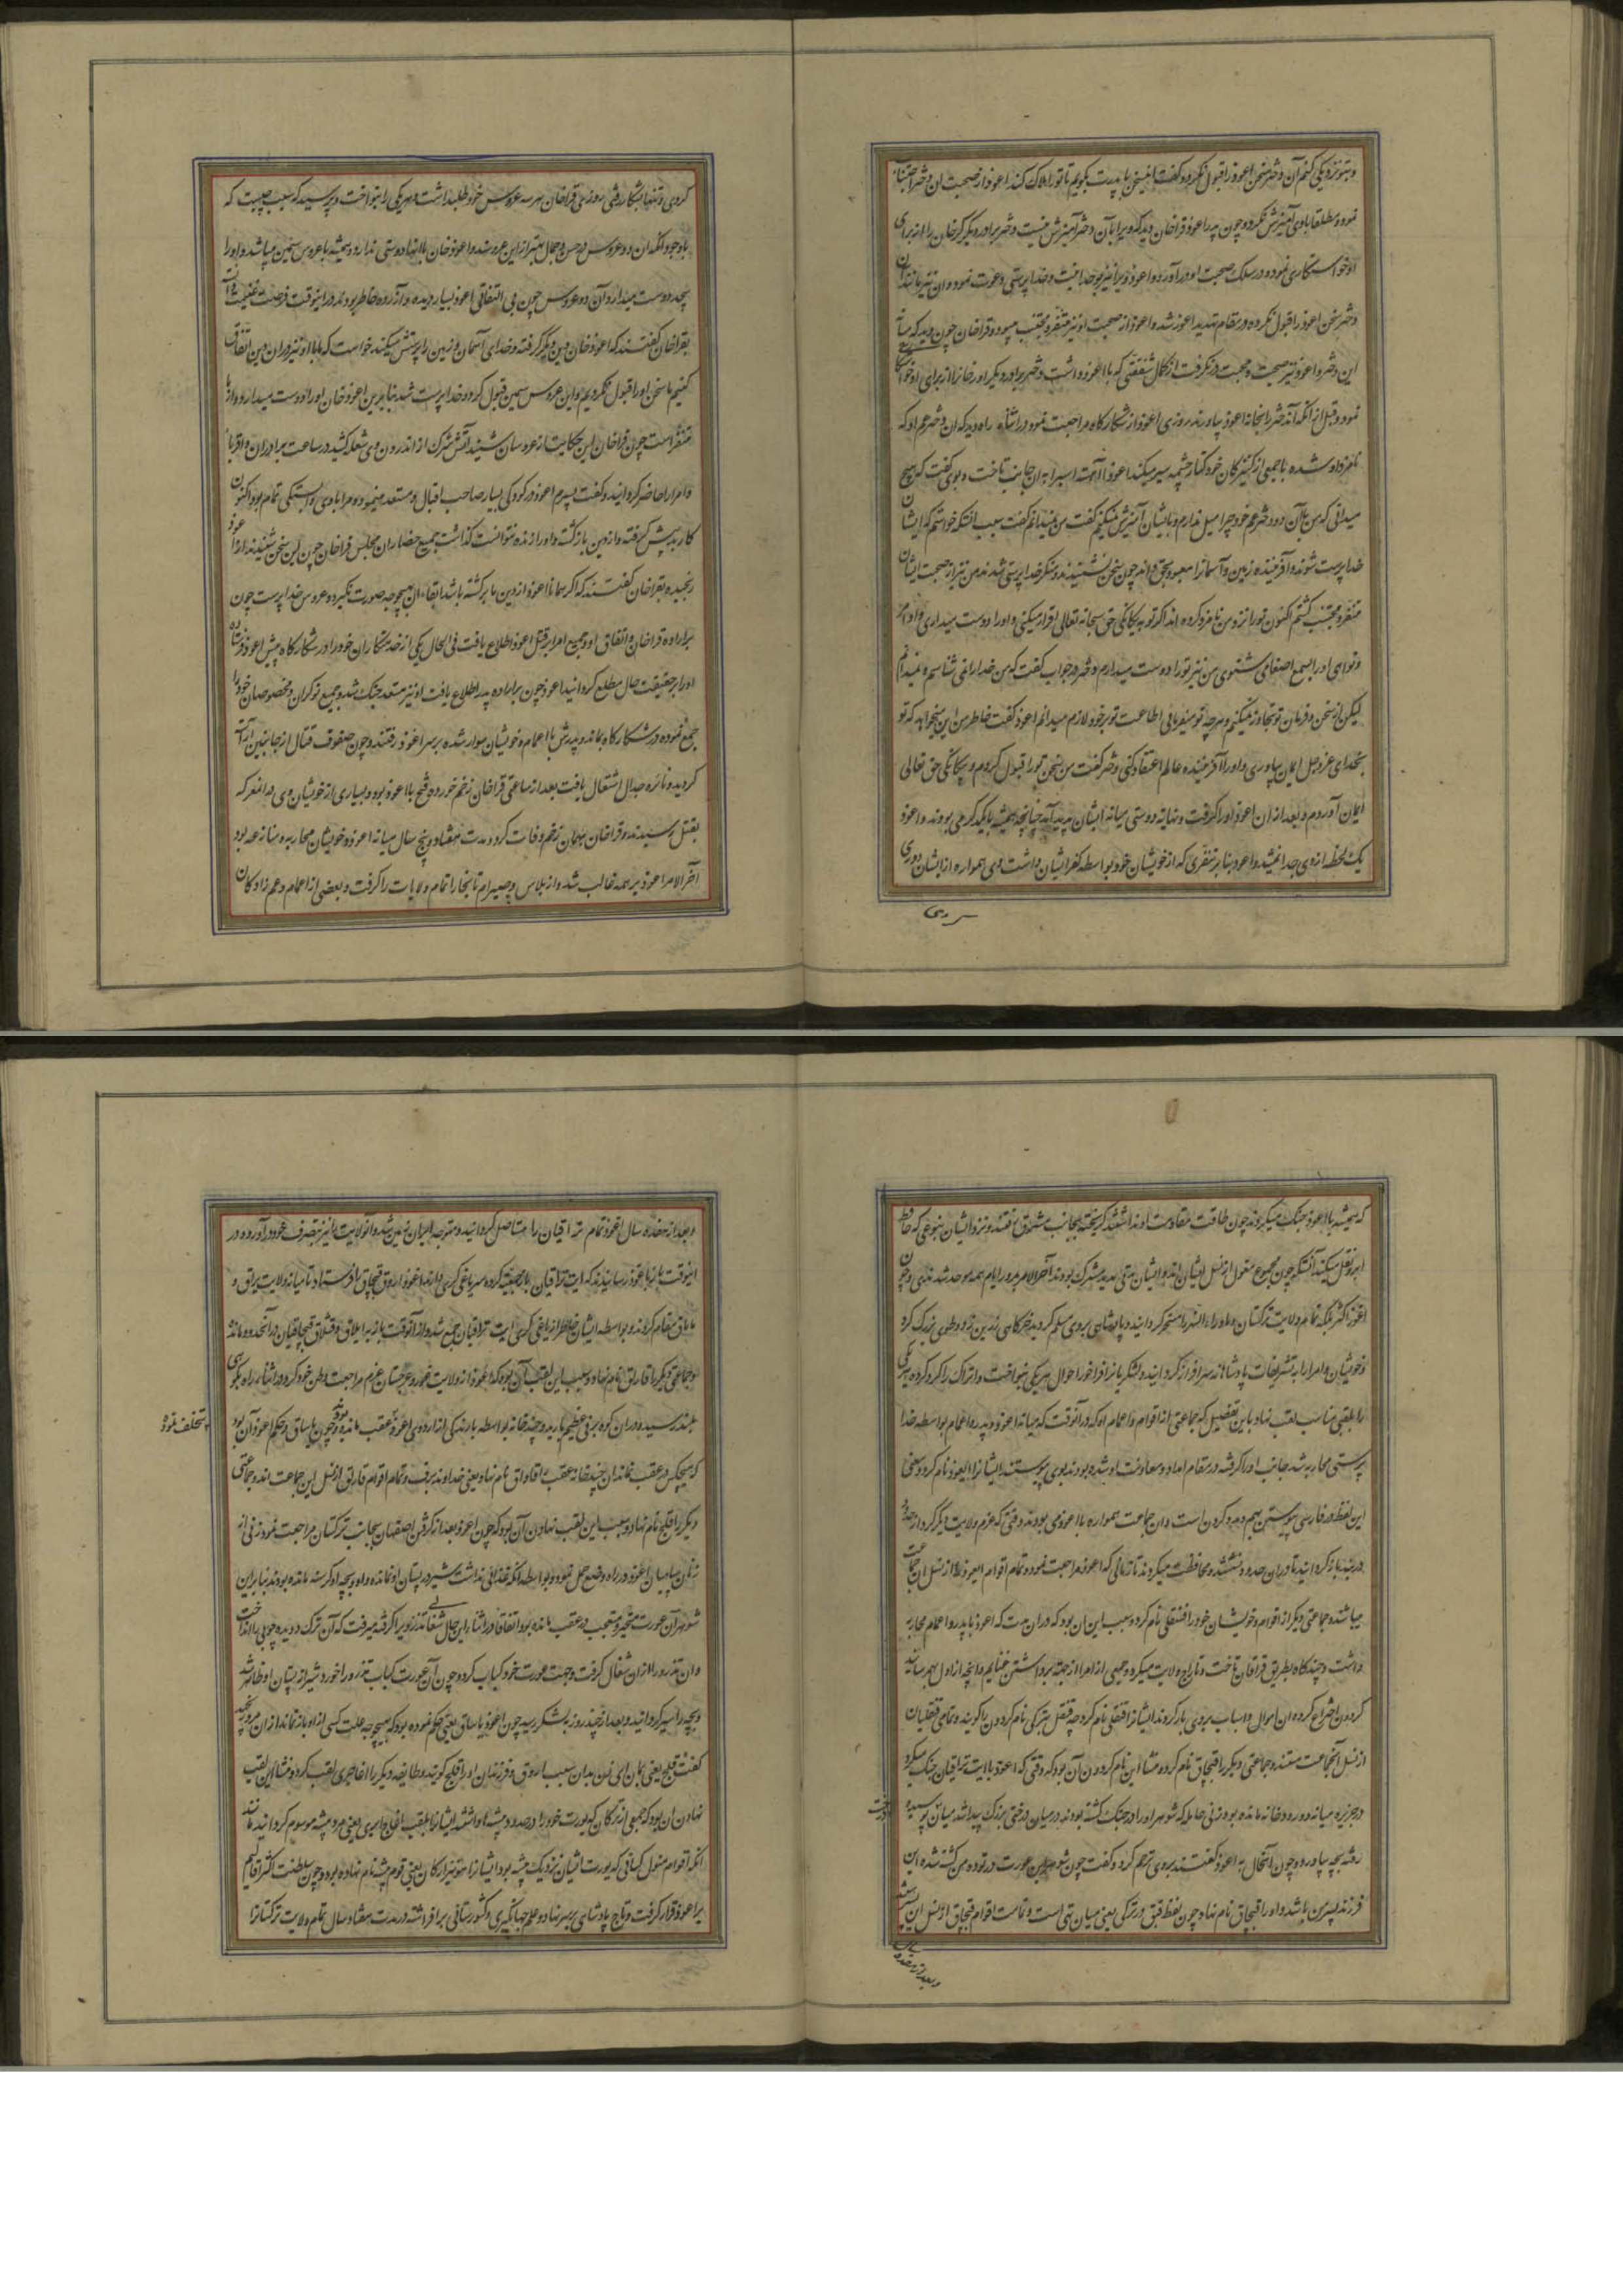 و بتو نزدیکی کنم آن دختر سخن اغوز را قبول نکرد و گفت این سخن با پدرت بگویم تا تو را هلاک کند اغوز از صحبت آن دختر اجتناب
نمود و مطلقا با وی آمیزش نکرد و چون پدر اغوز قراخان دید که ویرا با آن دختر آمیزش نیست دختر برادر دیگر کرخان را از برای
او خواستگاری نموده در سلک صحبت او درآورد و اغوز ویرا نیز بوحدانیت و خداپرستی دعوت نمود و آن نیز مانند آن
دختر سخن اغوز را قبول نکرده در مقام تهدید اغوز شد و اغوز از صحبت او نیز متنفر و مجتنب میبود و قراخان چون دید که میان
این دختر و اغوز نیز صحبت و محبت درنگرفت از کمال شفقتی که با اغوز داشت دختر برادر دیگر اورخانرا از برای او خواستگاری
نمود و قبل از آنکه آن دختر را بخانه اغوز بیاورند روزی اغوز از شکارگاه مراجعت نمود در اثناء راه دید که آن دختر عم او که
نامزد او شده با جمعی از کنیزکان خود کنار چشمه سیر میکند اغوز آهسته اسب را به آن جانب تاخت و بوی گفت که هیچ
میدانی که من با آن دو دختر عم خود چرا میل ندارم و با ایشان آمیزش نمیکنم گفت من نمیدانم گفت سبب آنکه خواستم که ایشان
خداپرست شوند و آفریننده زمین و آسمانرا معبود بحق دانند چون سخن نشنیدند و منکر خداپرستی شدند من نیز از صحبت ایشان
متنفر و مجتنب گشتم اکنون تو را نزد من نامزد کرده اند اگر تو به یگانگی حق سبحانه تعالی اقرار میکنی و او را دوست میداری و اوامر
و نواهی او را بسمع اصغا می شنوی من نیز تو را دوست میدارم دختر در جواب گفت که من خدا را نمی شناسم و نمیدانم
لیکن از سخن و فرمان تو تجاوز نمیکنم و هرچه تو میفرمایی اطاعت تو بر خود لازم میدانم اغوز گفت خاطر من این میخواهد که تو
بخدای عزوجل ایمان بیاوری و او را آفریننده عالم اعتقاد کنی دختر گفت من سخن تو را قبول کردم و بیگانگی حق تعالی
ایمان آوردم و بعد از آن اغوز او را گرفت و نهایة دوستی میانه ایشان پدید آمد چنانچه همیشه با یکدیگر می بودند و اغوز
یک لحظه از وی جدا نمیشد و اغوز بنابر تنفری که از خویشان خود بواسطه کفر ایشان داشت وی همواره از ایشان دوری
کردی و تنها بشکار رفتی روزی قراخان هر سه عروس خود طلب داشت و هر یکی را بنواخت و پرسید که سبب چیست که
با وجود آنکه آن دو عروس در حسن و جمال بهتر از این عروسند و اغوزخان با آنها دوستی ندارد و همیشه با عروس سمین میباشد و او را
بیحد دوست میدارد آن دو عروس چون بی التفاتی اغوز بسیار دیده و آزرده خاطر بودند در اینوقت فرصت غنیمت دانسته
بقراخان گفتند که اغوزخان دین دیگر گرفته و خدای آسمان و زمین را پرستش میکند خواست که ما با او نیز در آن دین اتفاق
کنیم ما سخن او را قبول نکردیم و این عروس سمین قبول کرد و خداپرست شد بنابرین اغوزخان او را دوست میدارد و از ما
متنفر است چون قراخان این حکایت از عروسان شنید آتش شرک از اندرون وی شعله کشید در ساعت برادران و اقربا
و امرا را حاضر گردانید و گفت پسرم اغوز در کودکی بسیار صاحب اقبال و مستعد مینمود و مرا با وی دلبستگی تمام بود اکنون
کار بد پیش گرفته و از دین بازگشته و او را زنده نتوان گذاشت جمیع حضاران مجلس قراخان چون این سخن شنیدند از اغوز
رنجیده بقراخان گفتند که اگر همانا اغوز از دین ما برگشته باشد ابقاء آن بهیچوجه صورت نگیرد و عروس خداپرست چون
بر اراده قراخان و اتفاق او و جمیع امرا بر قتل اغوز اطلاع یافت فی الحال یکی از خدمتکاران خود را در شکارگاه پیش اغوز فرستاده
او را بر حقیقت حال مطلع گردانید اغوز چون بر اراده پدر اطلاع یافت او نیز مستعد جنگ شد و جمیع نوکران و مخصوصان خود را
جمع نموده در شکارگاه بماند و پدرش با اعمام و خویشان سوار شده بر سر اغوز رفتند و چون صفوف قتال از جانبین آراسته
گردید و نائره جدال اشتعال یافت بعد از ساعتی قراخان زخم خورده و فتح با اغوز بود و بسیاری از خویشان وی در آن معرکه
بقتل رسیدند و قراخان بهمان زخم وفات کرد و مدت هفتاد و پنج سال میانه اغوز و خویشان محاربه و منازعه بود
آخرالامر اغوز بر همه غالب شد و از تلاس و صیرام تا بخارا تمام ولایات را گرفت و بعضی از اعمام و عم زادگان
که همیشه با اغوز جنگ میکردند چون طاقت مقاومت او نداشتند گریخته بجانب مشرق رفتند و نزد ایشان بنوعی که حافظ
ابرو نقل میکند آنستکه چون مجموع مغول از نسل ایشان اند و ایشان مدتی مدید مشرک بودند آخرالامر بمرور ایام همه موحد شدند و چون
اغوز اکثر بلکه تمام ولایت ترکستان و ماوراءالنهر را مسخر گردانید و پادشاهی بر وی مسلم گردید خرگاهی زرین زد و طوی بزرگ کرد
و خویشان و امرا را به تشریفات پادشاهانه سرافراز گردانید و لشکریانرا فراخور احوال هر یکی بنواخت و اتراک را گروه گروه هر یکی
را بلقبی مناسب لقب نهاد باین تفصیل که جماعتی از اقوام و اعمام او که در آنوقت که میانه اغوز و پدر و اعمام بواسطه خدا
پرستی محاربه شد جانب او را گرفته در مقام امداد و معاونت او شده بودند بوی پیوستند ایشانرا ایغور نام کرد و معنی
این لفظ در فارسی پیوستن بهم و مدد کردن است و آن جماعت همواره با اغوز می بودند وقتی که عزم ولایت دیگر کرد از حدود
دربند بازگردانید تا در آن حدود نشستند و محافظت میکردند تا زمانی که اغوز مراجعت نمود و تمام اقوام ایغور از نسل آن جماعت
میباشند و جماعتی دیگر از اقوام و خویشان خود را قنقلی نام کرد و سبب این آن بود که در آن مدت که اغوز با پدر و اعمام محاربه
داشت و چندگاه بطریق قزاقان تاخت و تاراج ولایت میکرد و جمعی از امرا از جهة برداشتن غنایم و آنچه از اول بهم رسانیده
گردون اختراع کرده آن اموال و اسباب بر وی بار کردند ایشانرا قنقلی نام کرد چه قنقل بترکی نام گردون را گویند و تمامی قنقلیان
از نسل آنجماعت هستند و جماعتی دیگر را قبچاق نام کرد و منشا این نام کردن آن بود که وقتی که اغوز با ایت براقیان جنگ میکرد
در جزیره میانه دو رودخانه مانده بود زنی حامله که شوهر او را در جنگ کشته بودند در میان درختی بزرگ پیدا شد میان پوسیده
درخت
رفته بچه بیاورد و چون آنحال به اغوز گفتند بر وی ترحم کرد و گفت چون شوهر این عورت در توده من کشته شده این
فرزند پسر من باشد و او را قبچاق نام نهاد چون لفظ قبق در ترکی یعنی میان تهی است و تمامت اقوام قبچاق از نسل آن پسرند
و بعد از هفده سال
و بعد از هفده سال اغوز تمام براقیان را مستاصل گردانید و متوجه ایران زمین شد و آنولایت را نیز بتصرف خود درآورد و در
اینوقت باز با اغوز رسانیدند که ایت براقیان باز جمعیت کرده سر یاغی گری دارند اغوز اروق قبچاق را فرستاد تا میانه ولایت براق و
یایاق مقام کردند و بواسطه ایشان خاطر از یاغی گری ایت براقیان جمع شد و از آنوقت باز به ایلاق و قشلاق قبچاقیان در آنحدود ماندند
و جماعتی دیگر را قارلق نام نهاد و سبب این لقب آن بود که اغوز از ولایت غور و غرجستان عزم مراجعت وطن خود کرد در اثناء راه بکوهی
بلند رسید و در آن کوه برفی عظیم بارید و چند خانه بواسطه بارندگی از اردوی اغوز عقب مانده بودند و چون یاساق و حکم اغوز آن بود
تخلف نموده
که هیچکس در عقب نماند آن چند خانه عقب مانده را قارلق نام نهاد یعنی خداوند برف و تمام اقوام قارلق از نسل این جماعت اند و جماعتی
دیگر را قلج نام نهاد و سبب این لقب نهادن آن بود که چون اغوز بعد از گرفتن اصفهان بجانب ترکستان مراجعت نمود زنی از
زنان سپاهیان اغوز در راه وضع حمل نمود و بواسطه آنکه غذائی نداشت شیر در پستان او نمانده و او و بچه او گرسنه مانده بودند بنابراین
شوهر آن عورت متحیر و متعجب در عقب مانده بود اتفاقا در اثناء این حال شغالی تذرویرا گرفته میرفت که آن ترک دویده چوبی را انداخت
و آن تذرو را از آن شغال گرفت و جهت عورت خود کباب کرد و چون آن عورت کباب تذرو را خورد شیر از پستان او ظاهر شد
و بچه را سیر گردانید و بعد از چند روز بلشکر رسید چون اغوز یاساق یعنی حکم نموده بود که بهیچوجه علت کسی از او باز نماند از آن مرد رنجیده
گفت قلج یعنی بمان ای زن بدان سبب اروق و فرزندان او را قلج گویند و طایفه دیگر را اغاجری لقب کرد و منشا این لقب
نهادن آن بود که جمعی از ترکان که یورت خود را در حدود بیشه ها داشتند ایشانرا بلقب اغاج ایری یعنی مرد بیشه موسوم گردانید مانند
آنکه اقوام مغول کسانی که یورت ایشان نزدیک بیشه بود ایشانرا هوئین ارکان یعنی قوم بیشه نام نهاده بود و چون سلطنت اکثر اقالیم
بر اغوز قرار گرفت و تاج پادشاهی بر سر نهاد و علم جهانگیری و کشورستانی برافراشته در مدت هفتاد سال تمام ولایت ترکستانرا